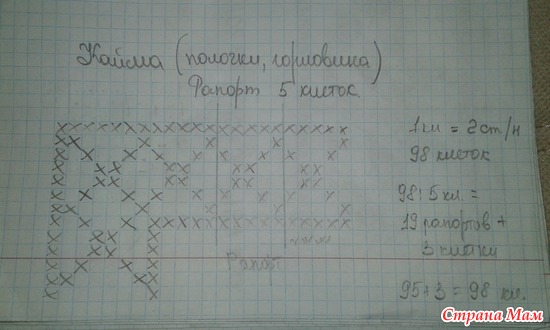 Кайма (полочки, горловина)
Рапорт 5 клеток.
1 кл = 2 ст/н
98 клеток
98 : 5 кл. =
19 рапортов +
3 клетки
Рапорт
95 + 3 = 98 кл.
Страна Мам